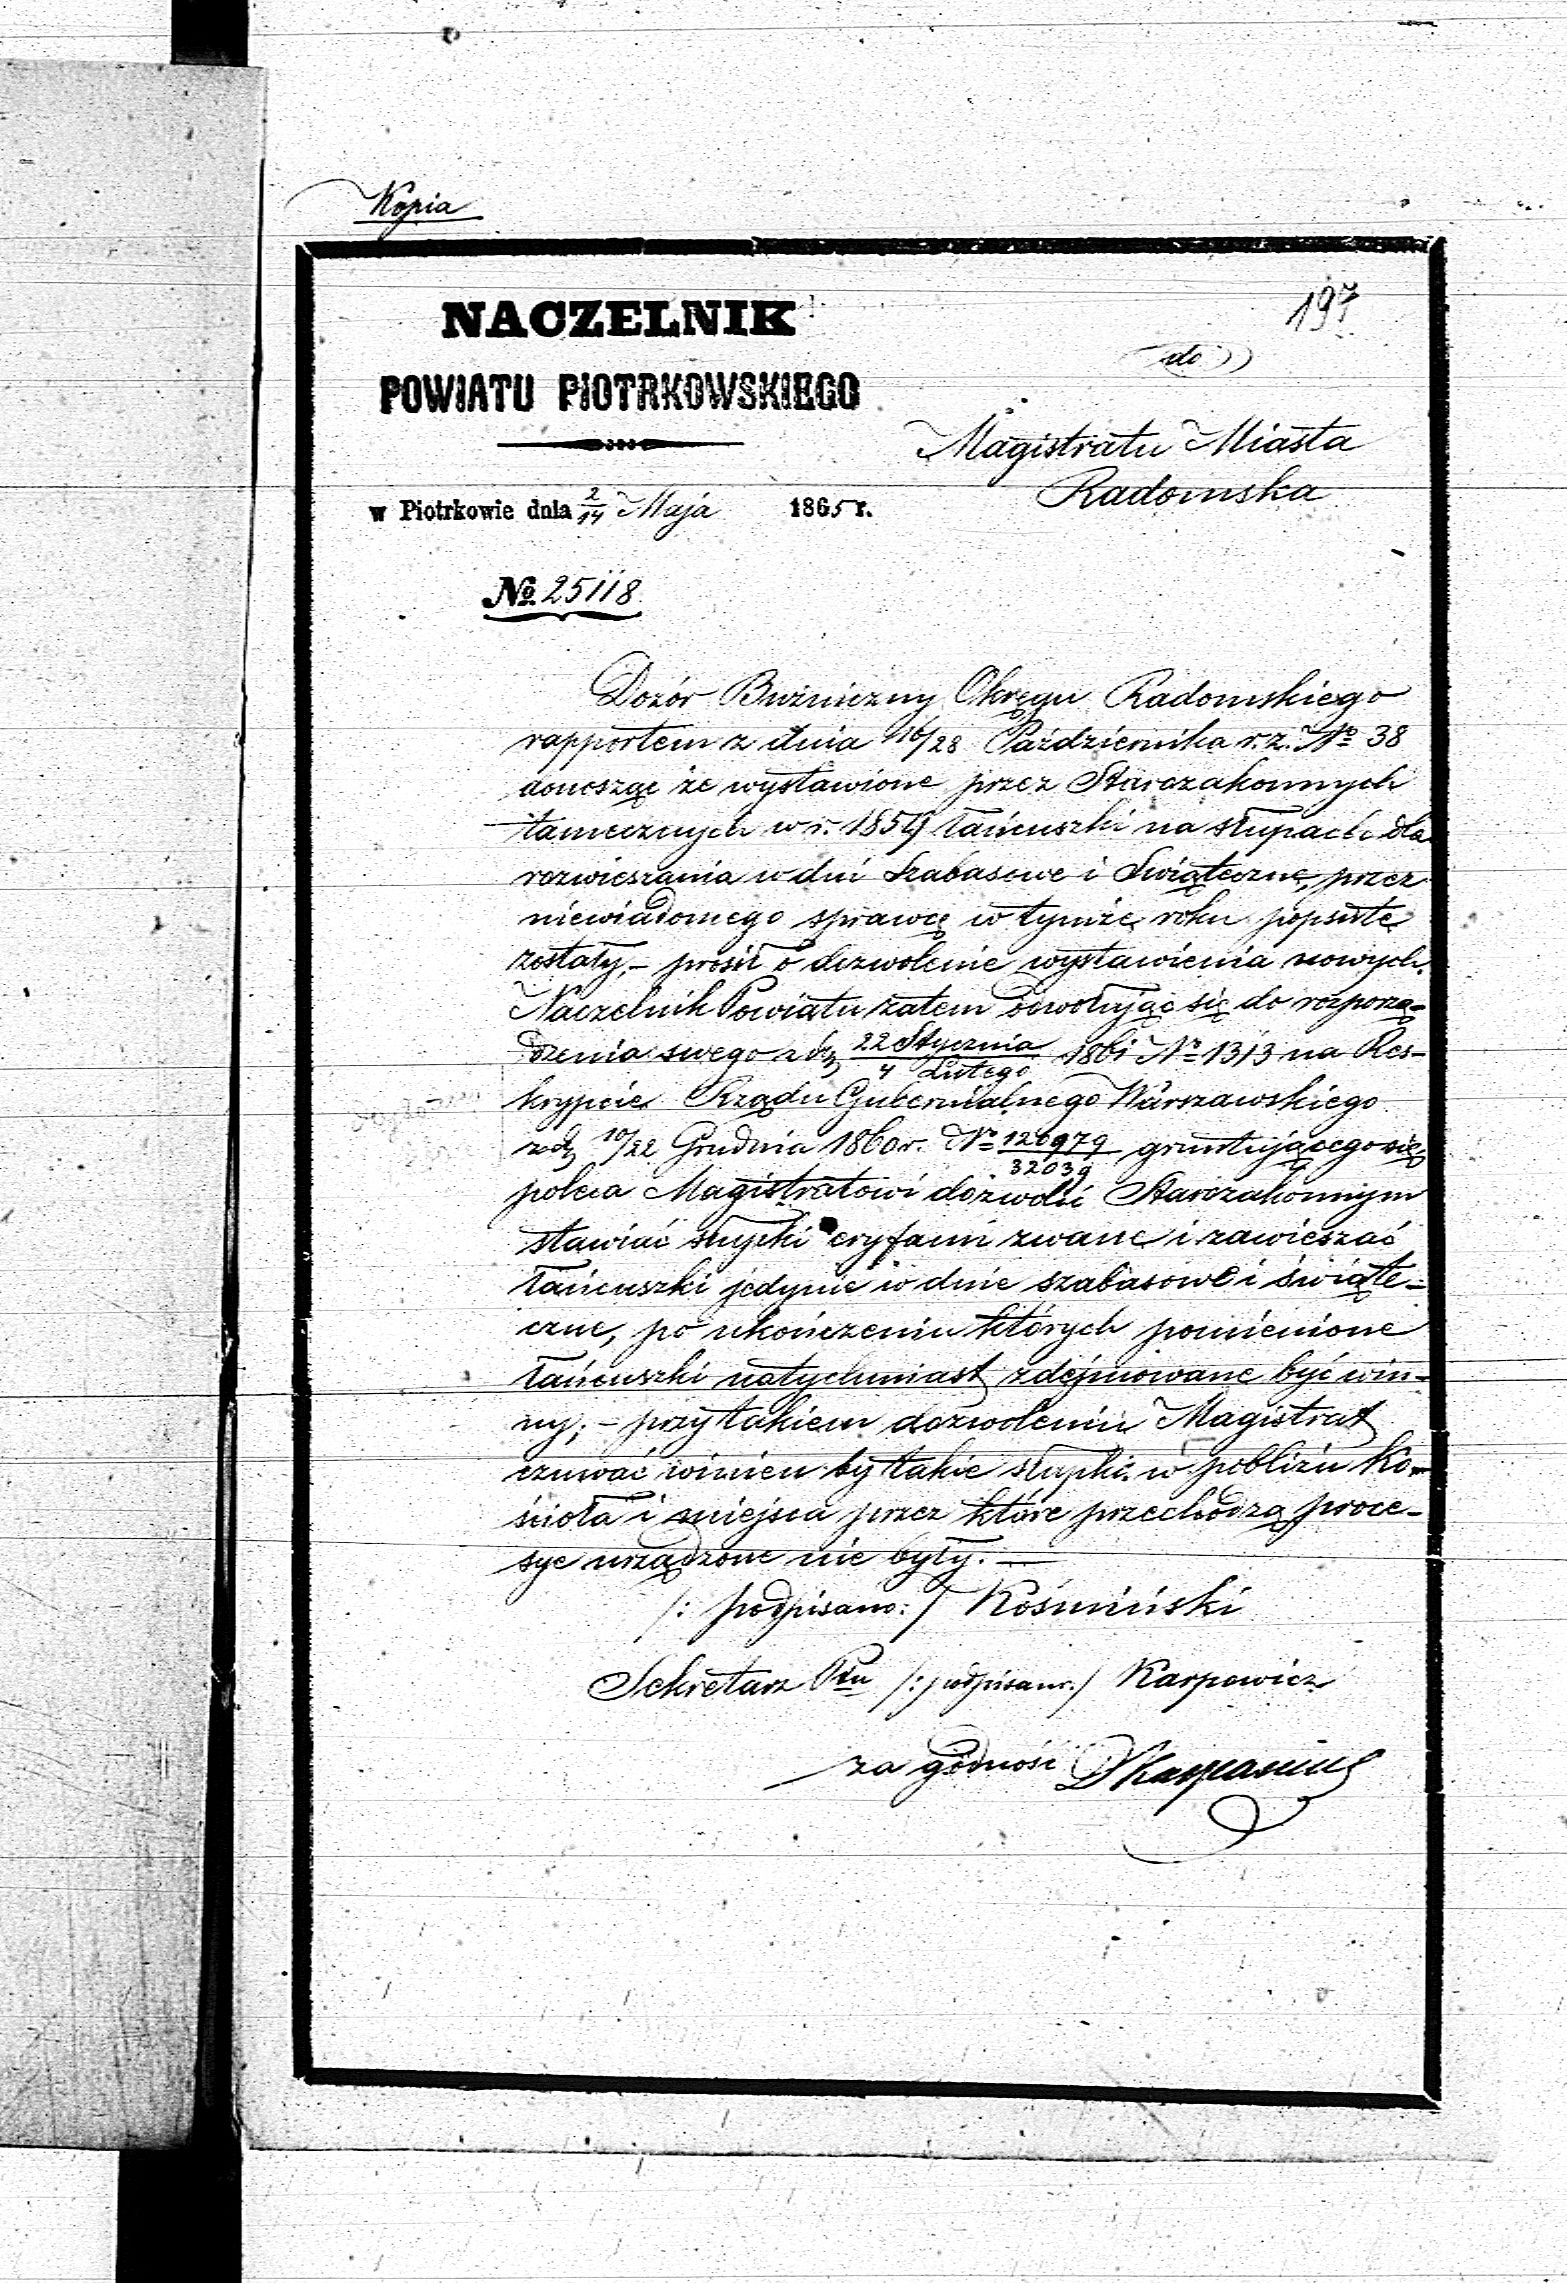 Kopia
197
NACZELNIK
POWIATU PIOTRKOWSKIEGO
do
Magistratu Miasta
Radomska
w Piotrkowie dnia 2/14 Maja 1865 r.
No 25118
Dozór Bużniczny Okręgu Radomskiego
rapportem z dnia 16/28 Października r. z. No 38
donosząc że wystawione przez Starozakonnych
tamecznych w r. 1859 łańcuszki na słupach dla
rozwieszania w dni Szabasowe i Swiąteczne, przez
niewiadomego sprawcę w tymże roku popsute
zostały, – prosił o dozwolenie wystawienia nowych.
Naczelnik Powiatu zatem odwołując się do rozporzą-
dzenia swego z d. 22 Stycznia / 4 Lutego 1861 No 1313 na Res-
krypcie Rządu Gubernialnego Warszawskiego
z d. 10/22 Grudnia 1860 r. No 120979/32039 gruntującego się
poleca Magistratowi dozwolić Starozakonnym
stawiać słupki eryfami zwane i zawieszać
łańcuszki jedynie w dnie szabasowe i świąte-
czne, po ukończeniu których pomienione
łańcuszki natychmiast zdejmowane być win-
ny; – przy takiem dozwoleniu Magistrat
czuwać winien by takie słupki w pobliżu Ko-
ścioła i miejsca przez które przechodzą proce-
sye urządzone nie były. —
/: podpisano :/ Kośmiński
Sekretarz Ptu /: podpisano :/ Karpowicz
za godność